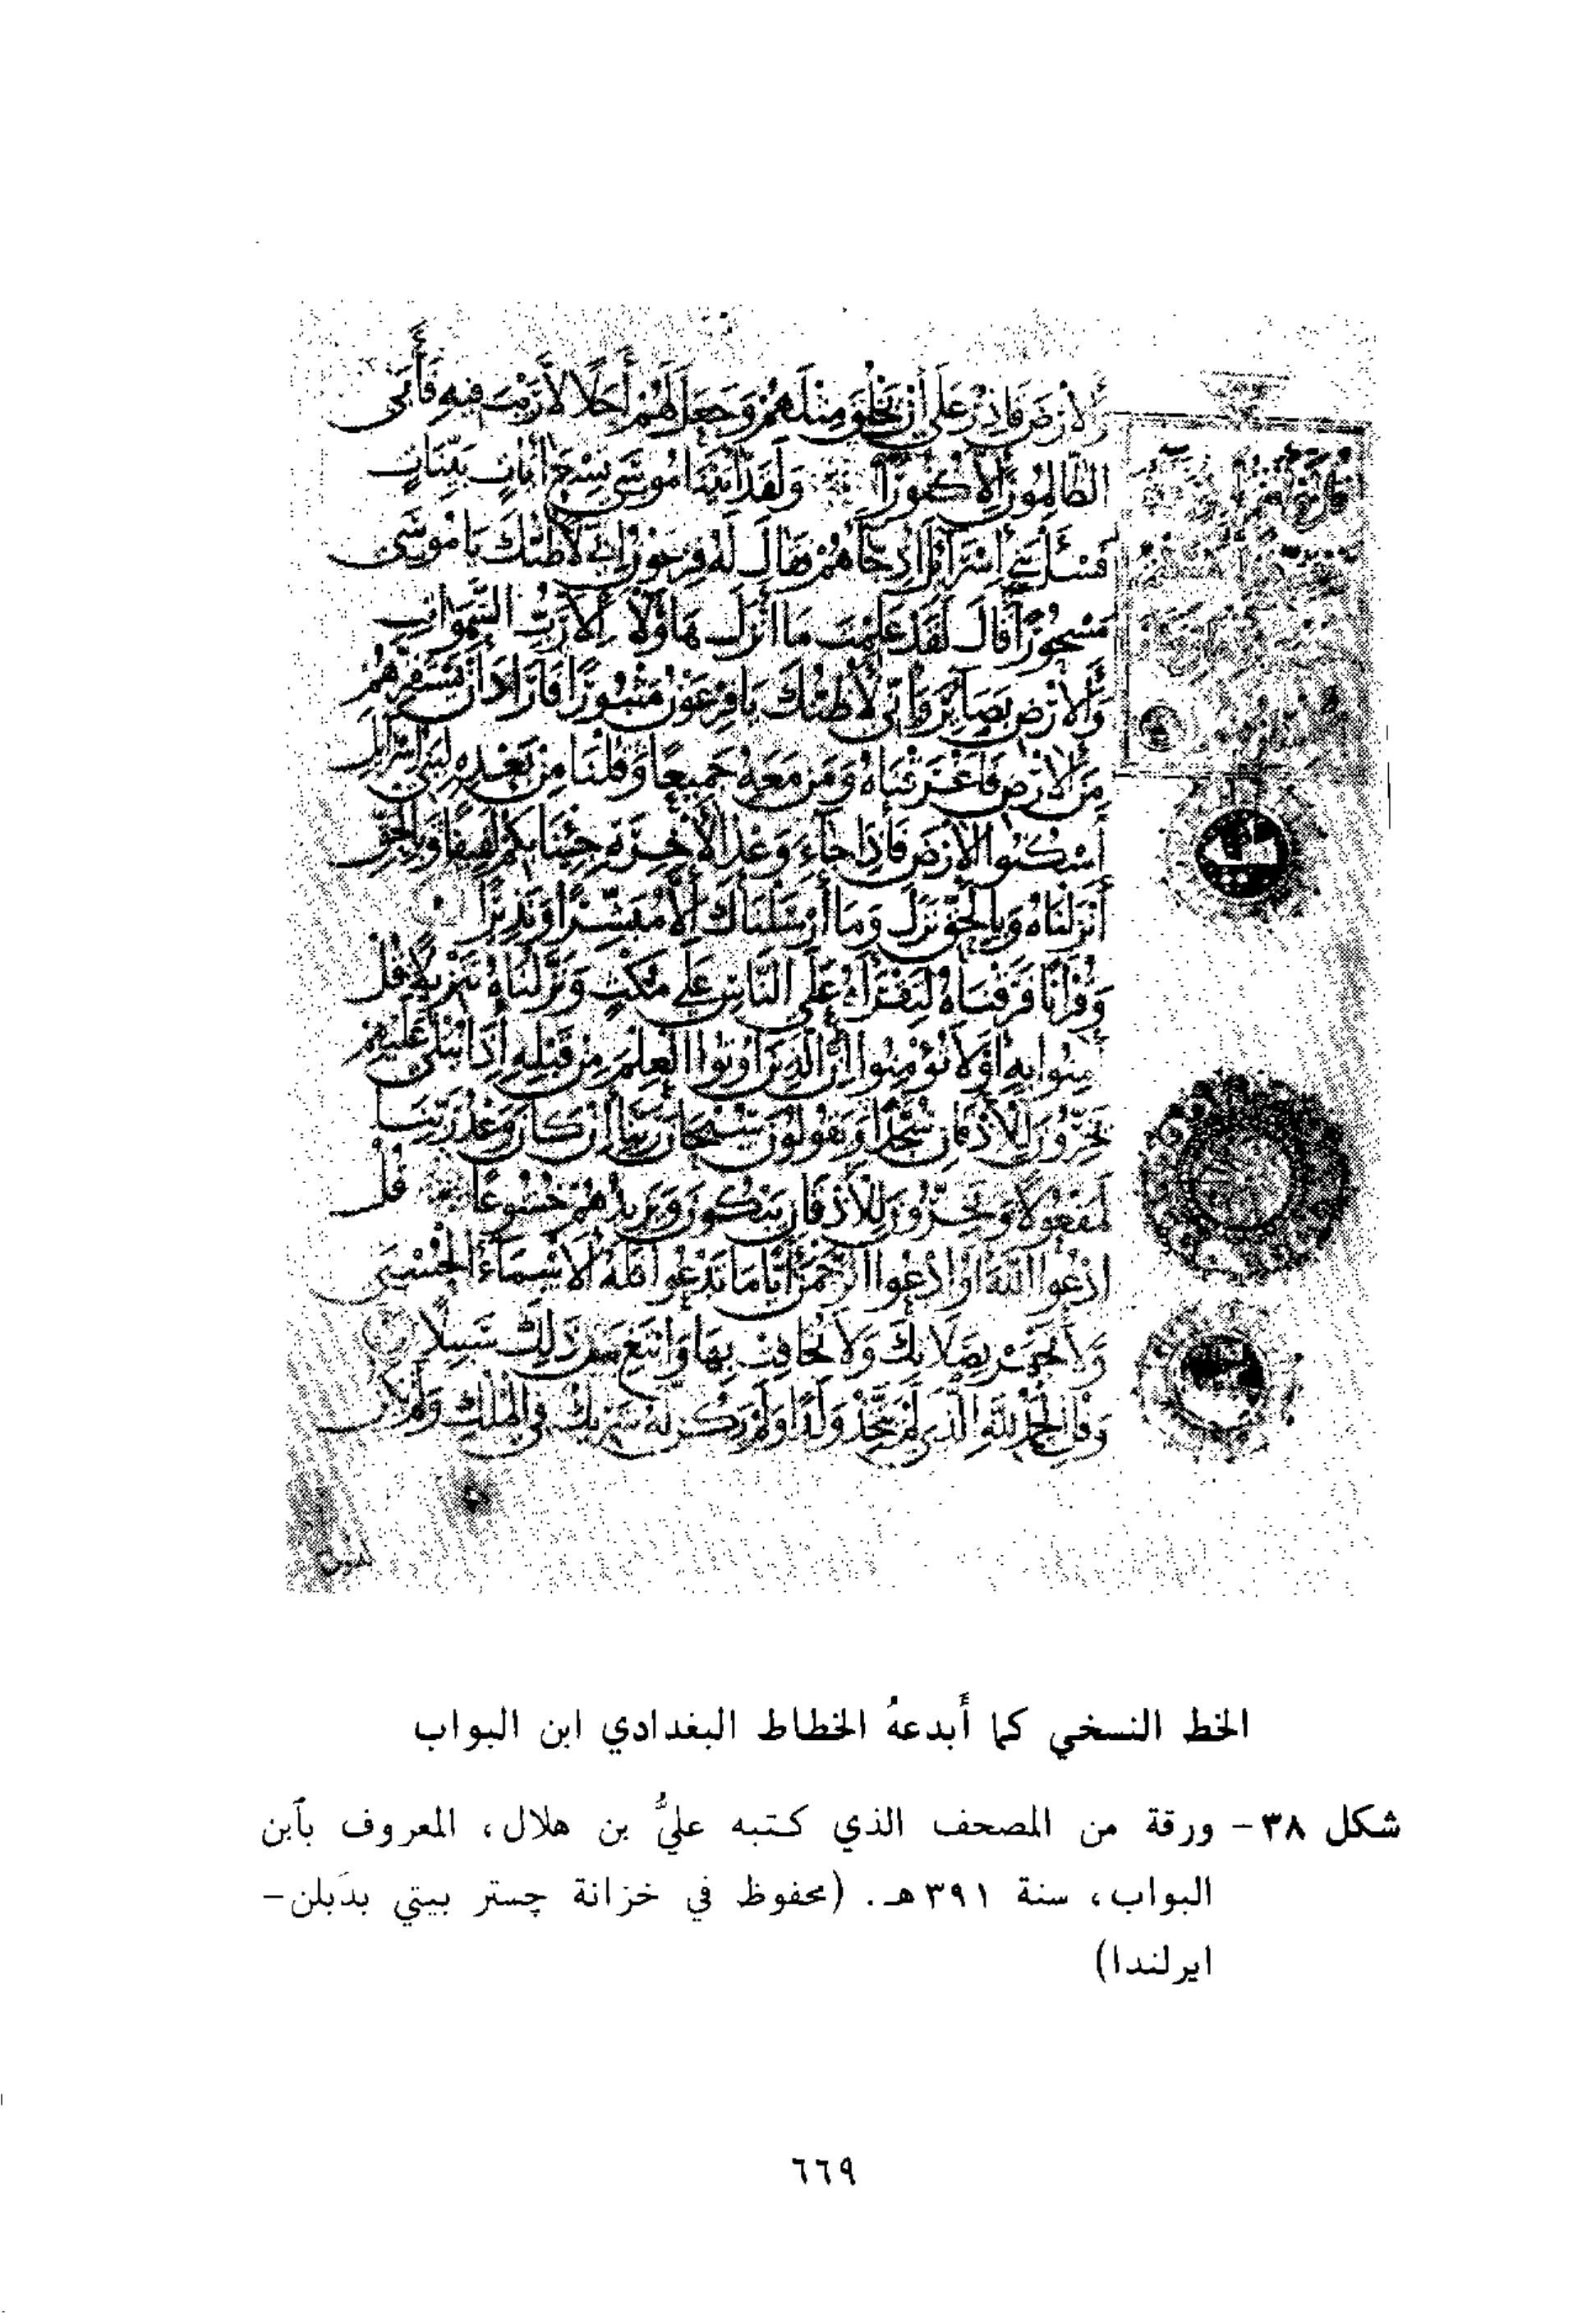 والارض قادر على أن يخلق مثلهم وجعل لهم أجلا لا ريب فيه فأبى
الظالمون إلا كفورا ولقد اتينا موسى تسع ايات بينات
فسئل بني اسرائل اذ جاءهم فقال له فرعون اني لاظنك يا موسى
مسحورا قال لقد علمت ما انزل هاؤلاء الا رب السموات
والارض بصائر واني لاظنك يا فرعون مثبورا فاراد ان يستفزهم
من الارض فاغرقناه ومن معه جميعا وقلنا من بعده لبني اسرائل
اسكنوا الارض فاذا جاء وعد الاخرة جئنا بكم لفيفا وبالحق
أنزلناه وبالحق نزل وما أرسلناك الا مبشرا ونذيرا
وقرانا فرقناه لتقرأه على الناس على مكث ونزلناه تنزيلا قل
امنوا به او لا تؤمنوا ان الذين اوتوا العلم من قبله اذا يتلى عليهم
يخرون للاذقان سجدا ويقولون سبحان ربنا ان كان وعد ربنا
لمفعولا ويخرون للاذقان يبكون ويزيدهم خشوعا قل
ادعوا الله او ادعوا الرحمن ايا ما تدعوا فله الاسماء الحسنى
ولا تجهر بصلاتك ولا تخافت بها وابتغ بين ذلك سبيلا
وقل الحمد لله الذي لم يتخذ ولدا ولم يكن له شريك في الملك ولم يكن
الخط النسخي كما أبدعهُ الخطاط البغدادي ابن البواب
شكل ٣٨- ورقة من المصحف الذي كتبه عليُّ بن هلال، المعروف بآبن
البواب، سنة ٣٩١هـ. (محفوظ في خزانة چستر بيتي بدَبلن-
ايرلندا)
٦٦٩